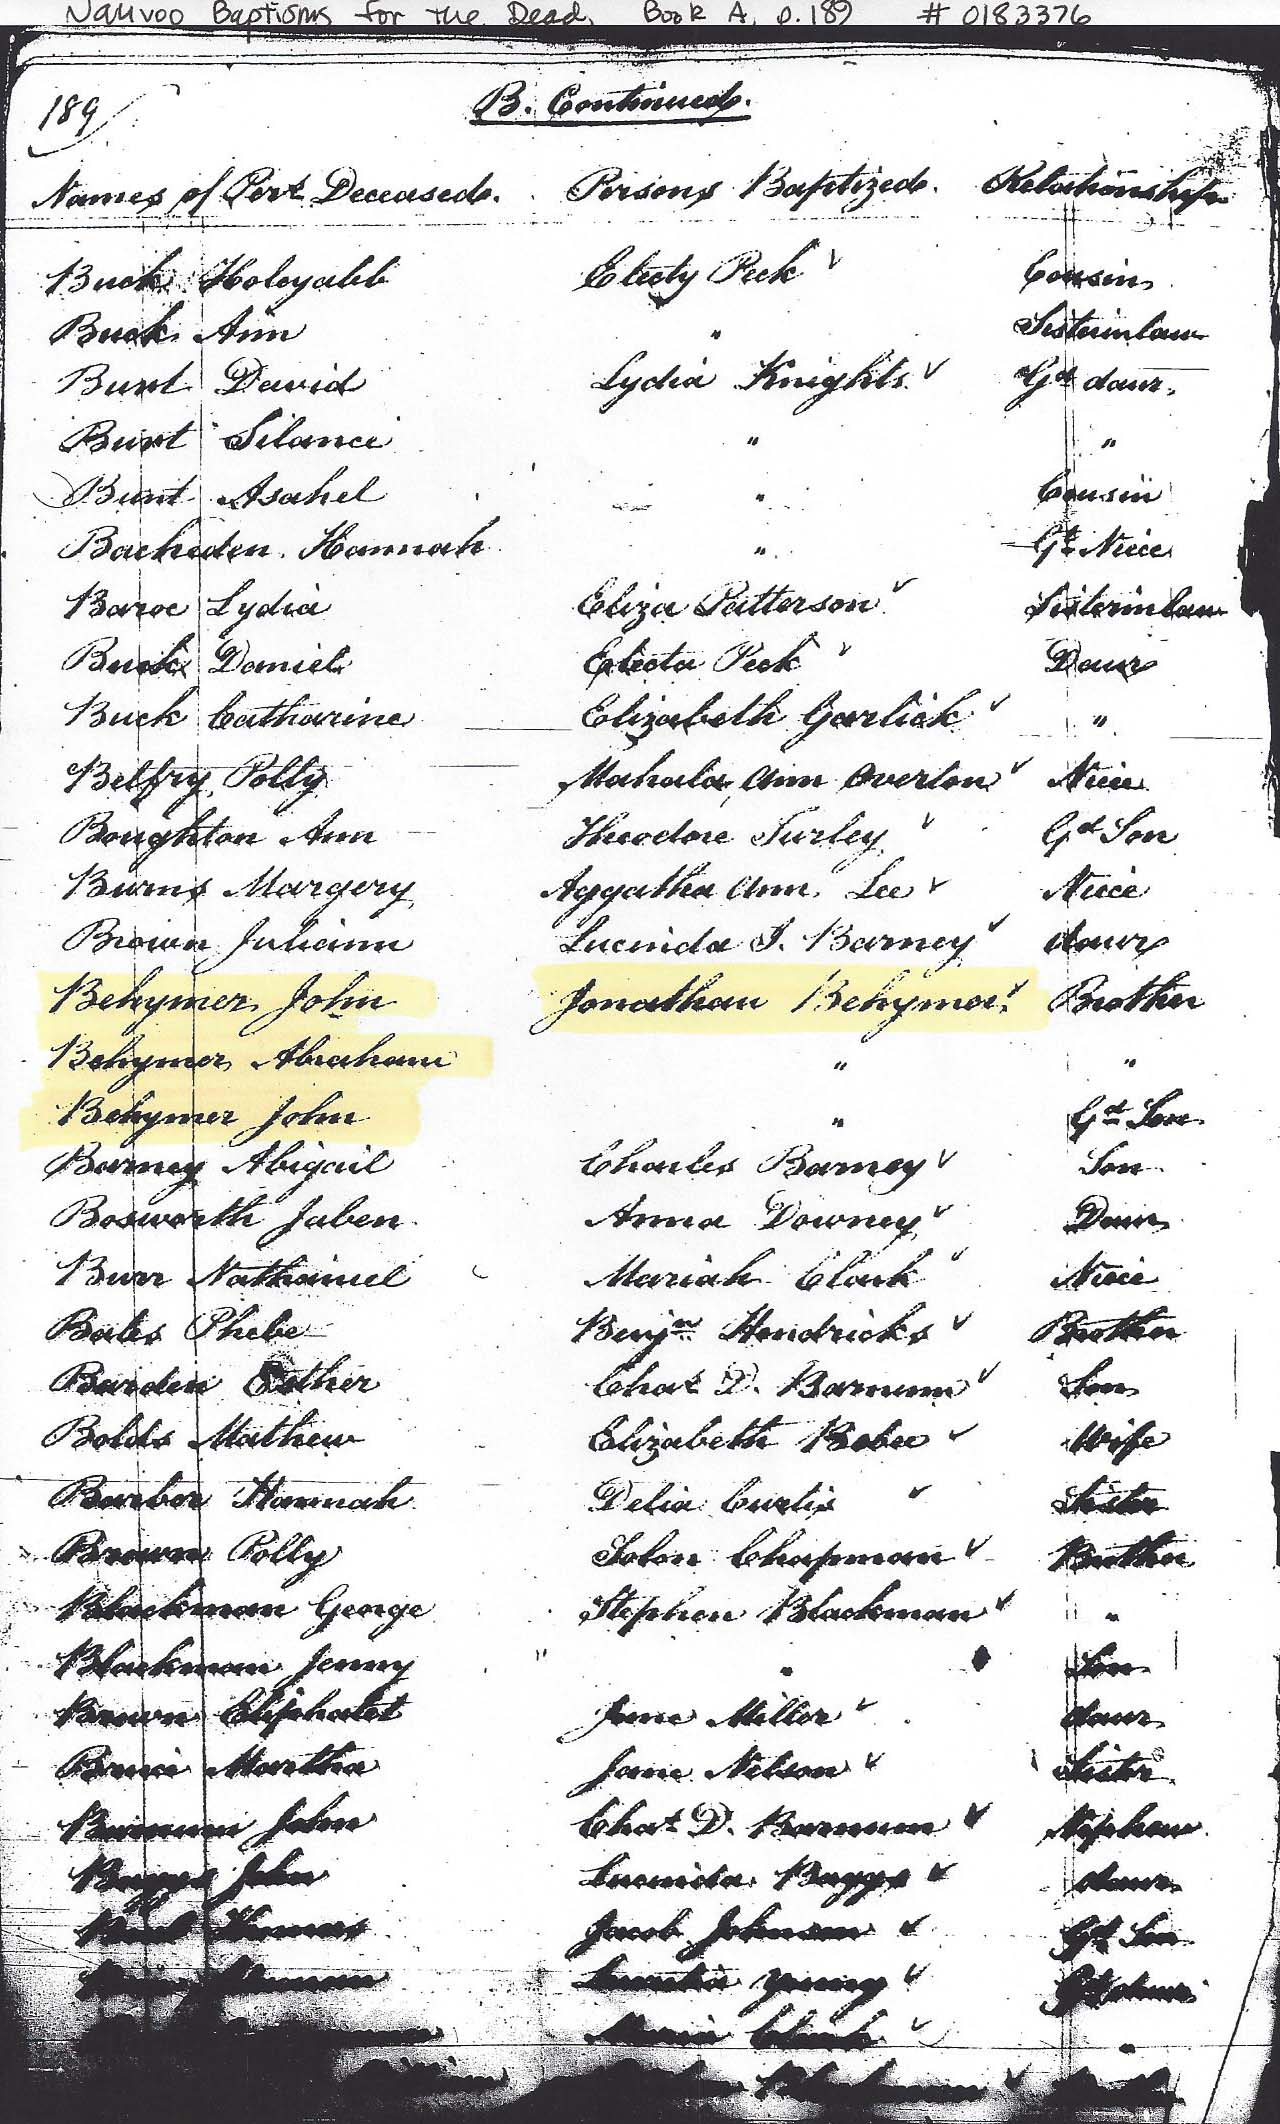 Nauvoo Baptisms for the Dead, Book A, p. 189 # 0183376
189
B. Continued.
Names of Pers Deceased. Persons Baptized. Relationship
Buck Electy Peck Cousin
Buck Ann " Sisterinlaw
Burt David Lydia Knights Gd daur.
Burt Silance " "
Burt Asahel " Cousin
Hannah " Gt Niece
Lydia Eliza Patterson Sisterinlaw
Buck Daniel Electa Peck Daur
Buck Catharine Elizabeth Garlick "
Belfry Polly Mahala Ann Overton Niece
Boughton Ann Theodore Turley Gd Son
Burns Margery Aggatha Ann Lee Niece
Brown Juliann Lucinda Barney daur
Behymer John Jonathan Behymer Brother
Behymer Abraham " "
Behymer John " Gd Son
Barney Abigail Charles Barney Son
Bosworth Jaben Anna Downey Daur
Burr Nathaniel Mariah Clark Niece
Bates Phebe Benjn Hendricks Brother
Barden Esther Chas D. Barnum Son
Bolds Mathew Elizabeth Wife
Barber Hannah Delia Curtis Sister
Brown Polly Solon Chapman Brother
Blackman George Stephen Blackman "
Blackman Jenny " Son
Brown Eliphalet Jane Miller daur
Bruce Martha Jane Nelson Sister
Barnum John Chas D. Barnum Nephew
Baggs John Lucinda Baggs daur
Thomas Jacob Johnson Gd Son
Young
Maria Clark "
Blackman